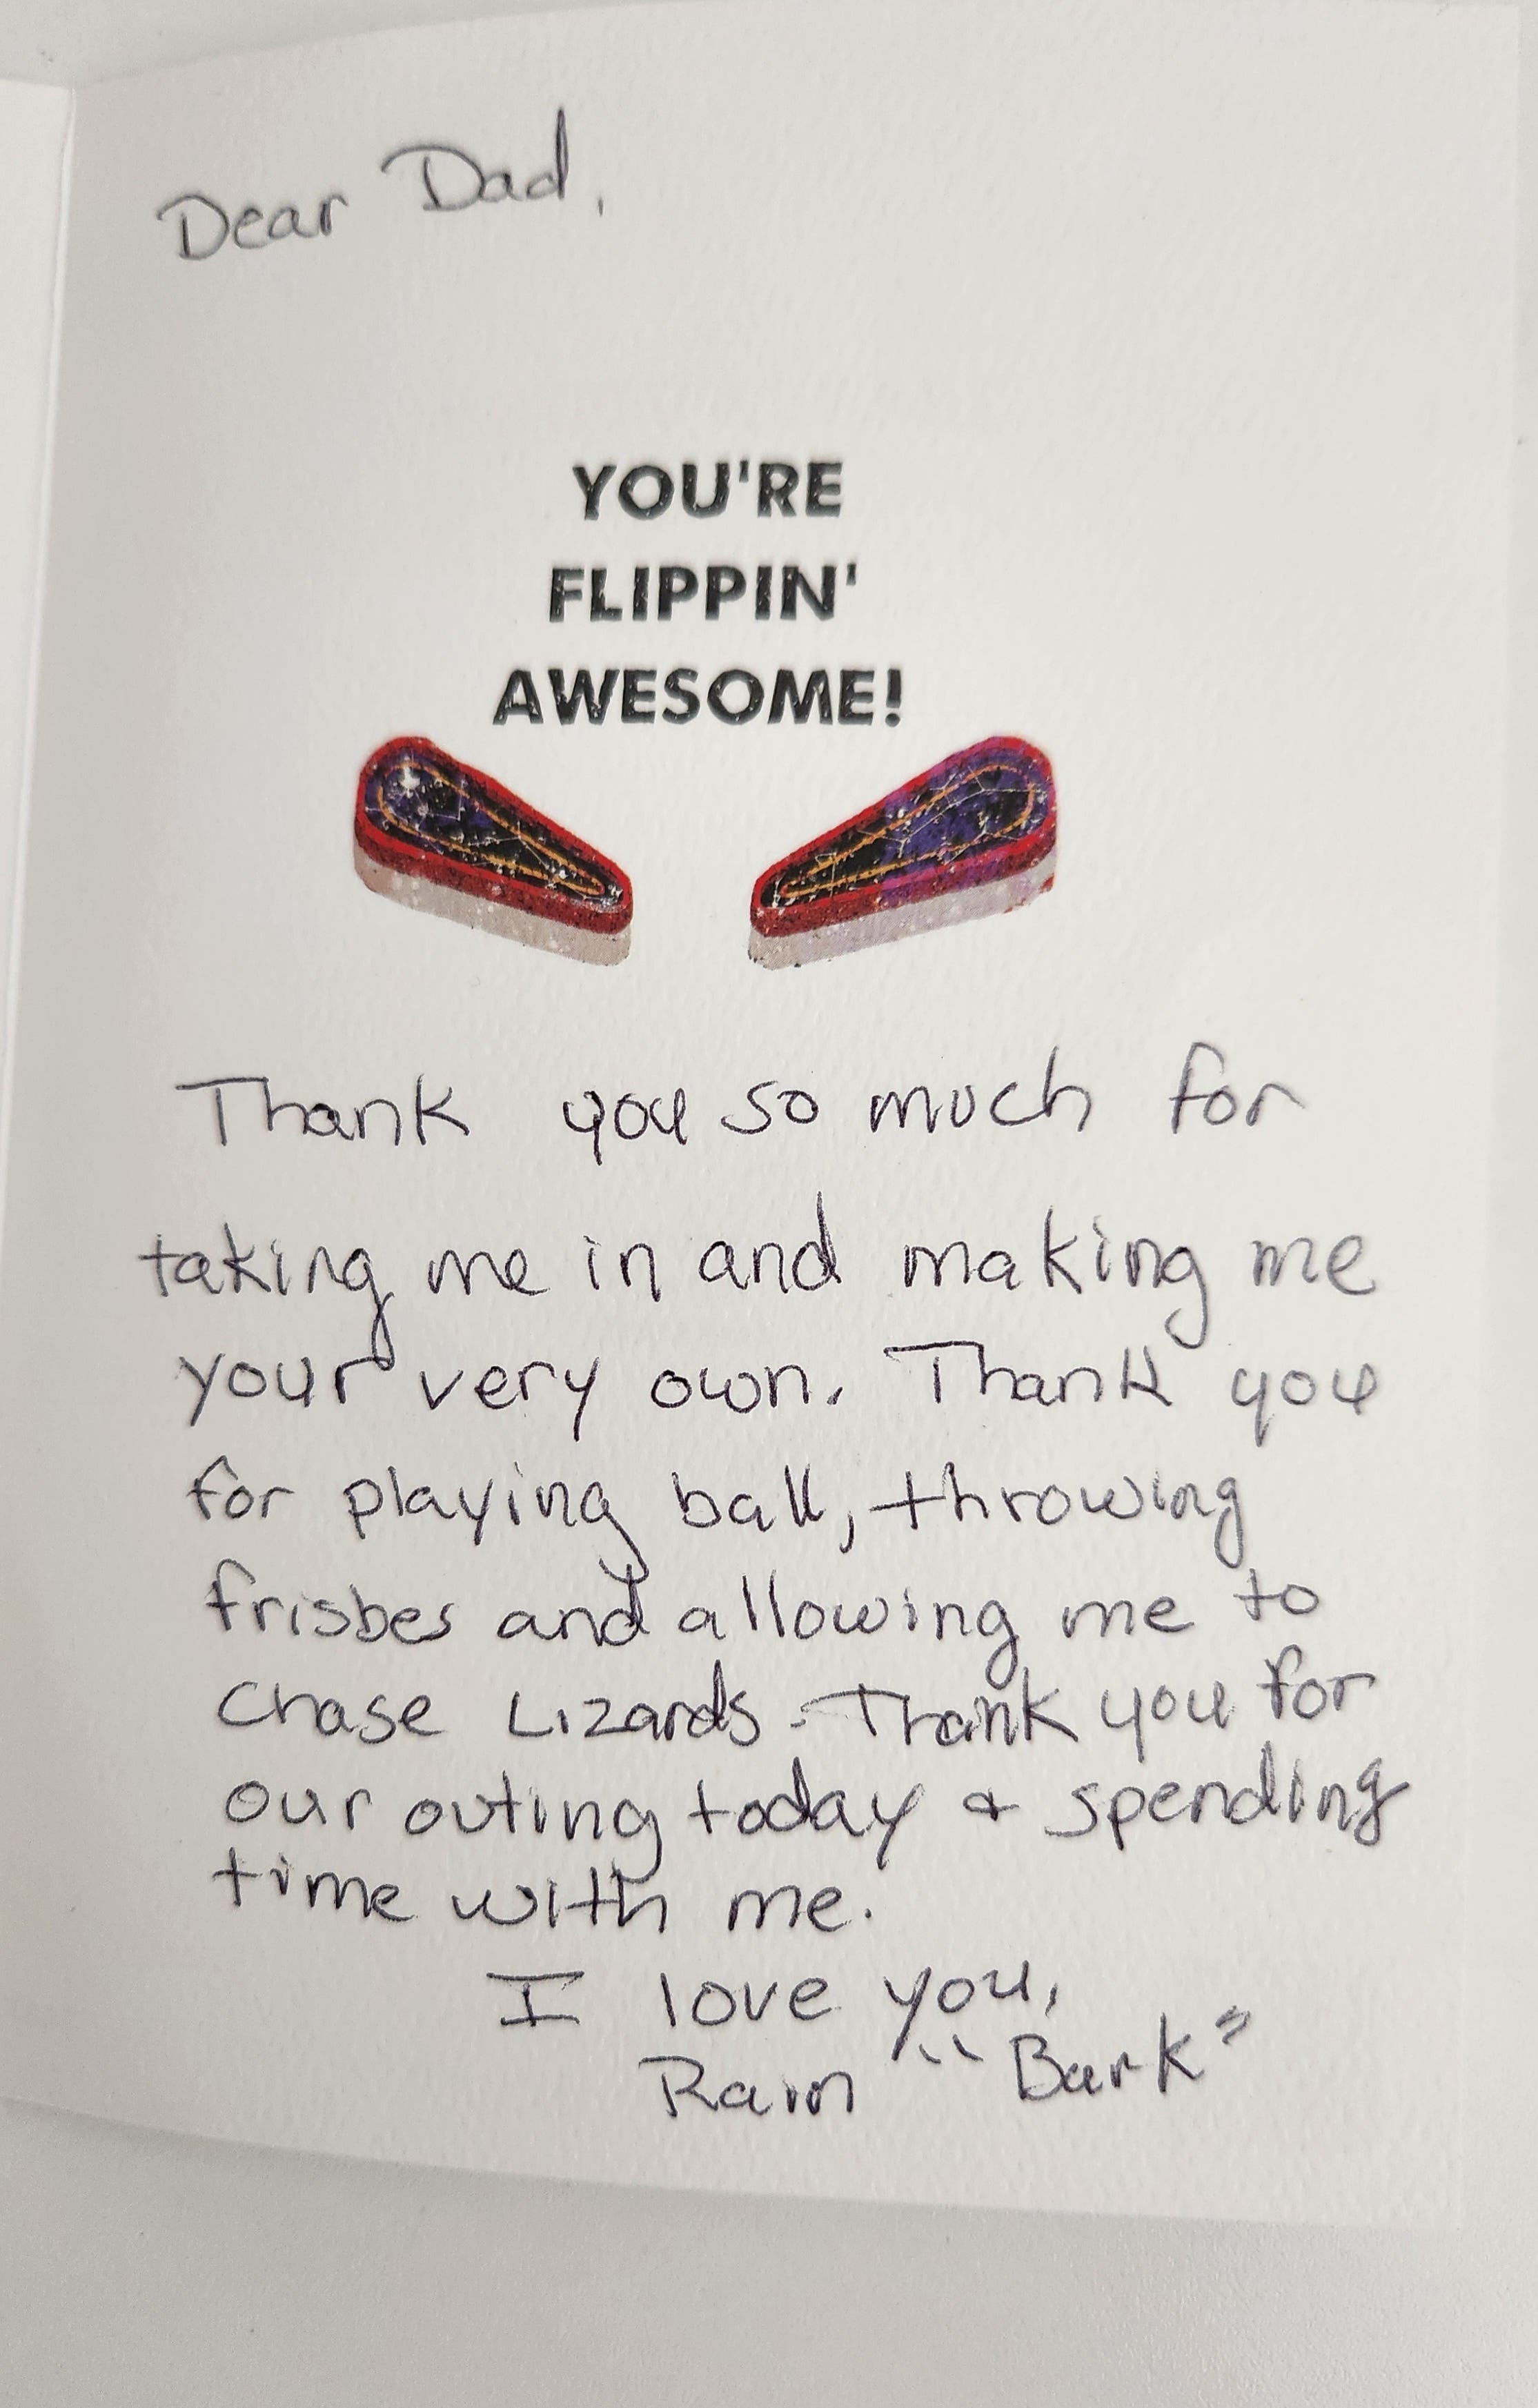 Dear Dad,
YOU'RE
FLIPPIN'
AWESOME!
Thank you so much for
taking me in and making me
your very own. Thank you
for playing ball, throwing
frisbes and allowing me to
chase Lizards. Thank you for
our outing today & spending
time with me.
I love you,
Rain "Bark"